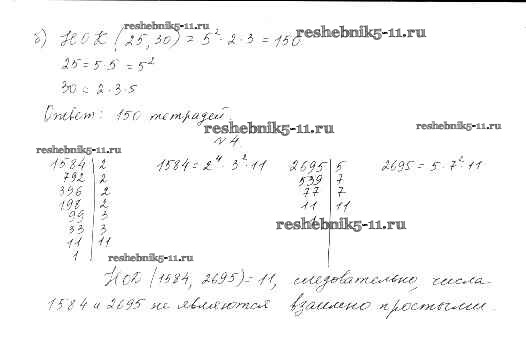 reshebnik5-11.ru
б) НОК (25,30) = 5² · 2 · 3 = 150 reshebnik5-11.ru
25 = 5 · 5 = 5²
30 = 2 · 3 · 5 reshebnik5-11.ru
Ответ: 150 тетрадей.
reshebnik5-11.ru
№ 4.
reshebnik5-11.ru
1584 | 2 1584 = 2⁴ · 3² · 11 2695 | 5 2695 = 5 · 7² · 11
792 | 2 539 | 7
396 | 2 77 | 7
198 | 2 11 | 11
99 | 3 1
reshebnik5-11.ru
33 | 3
11 | 11
1 reshebnik5-11.ru
НОД (1584, 2695) = 11, следовательно, числа
1584 и 2695 не являются взаимно простыми.